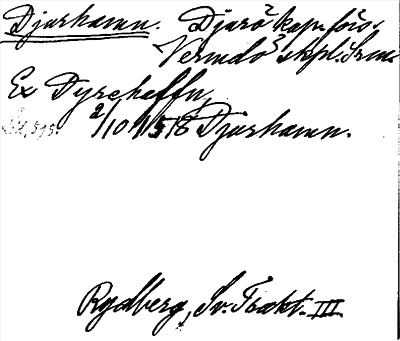 Djurhamn. Djurö kap.förs.
Vermdö skpl. Srm.
Ex Dyrehaffn,
2/10 1518 Djurhamn.
Rydberg, Sv. Trakt. III